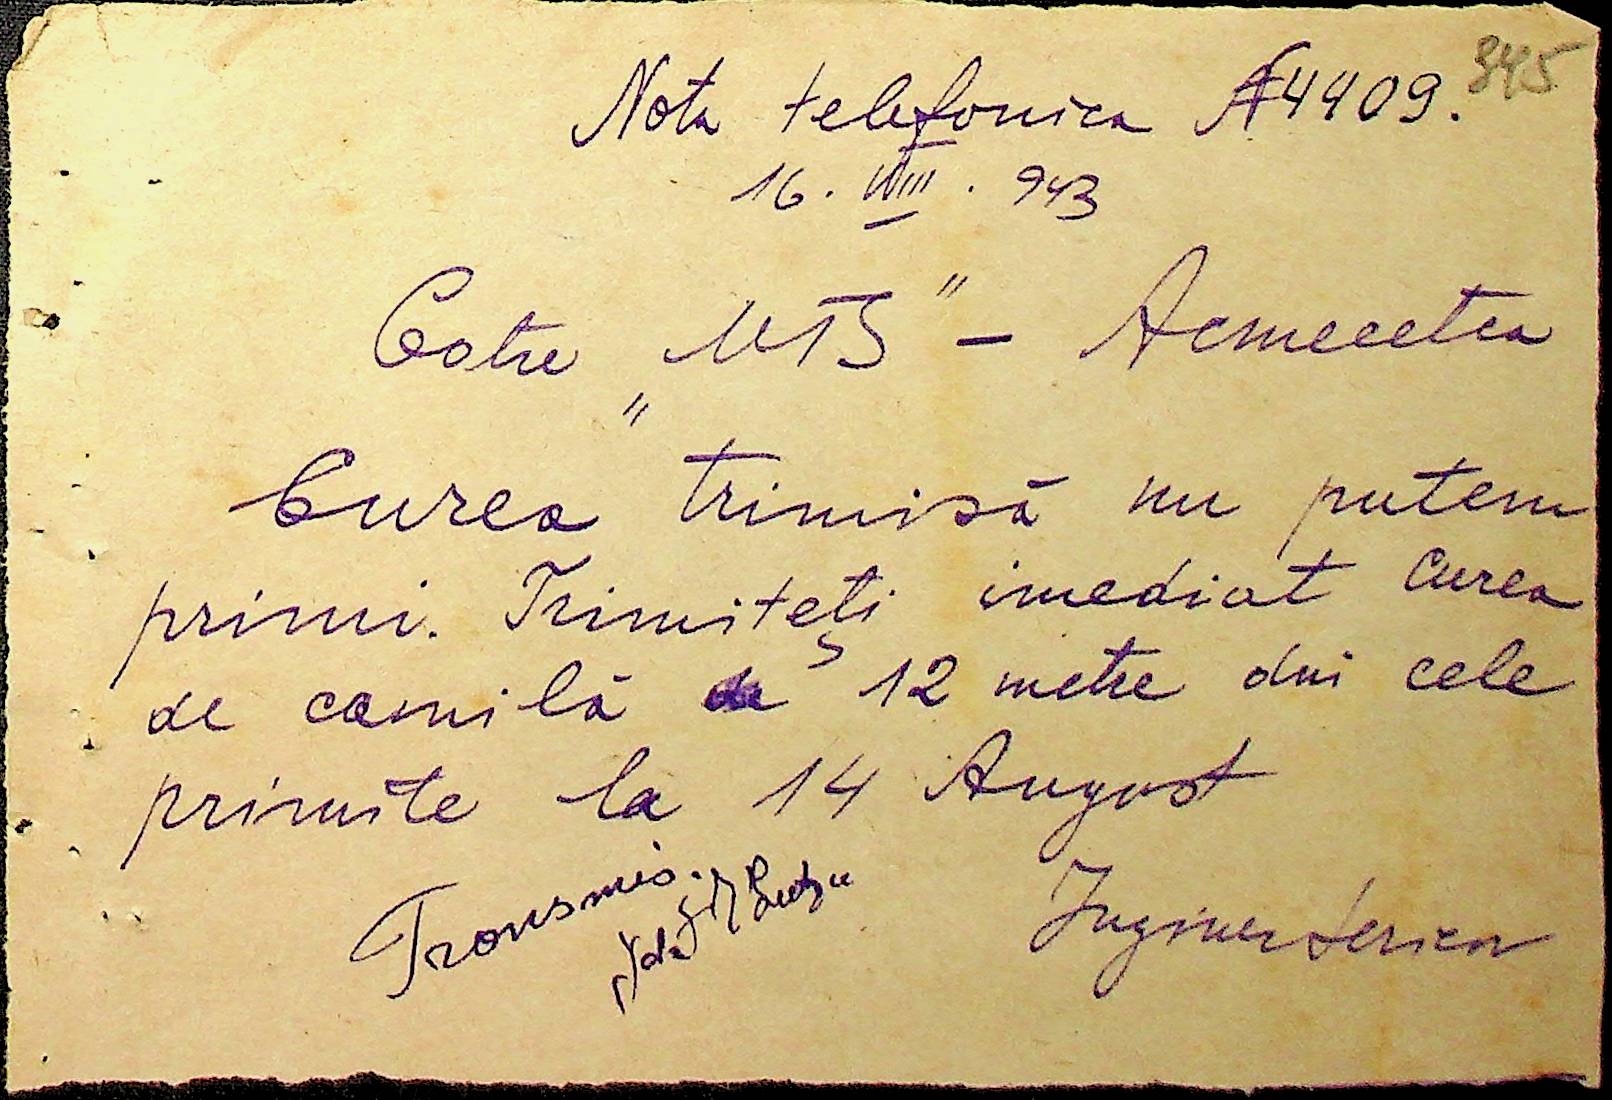 345
Nota telefonica №4409.
16. VIII. 943
Cotre „MTS" - Acmecetca
Curea trimisă nu putem
primi. Trimiteți imediat curea
de camilă de 12 metre din cele
primite la 14 August
Transmis.
Inginer